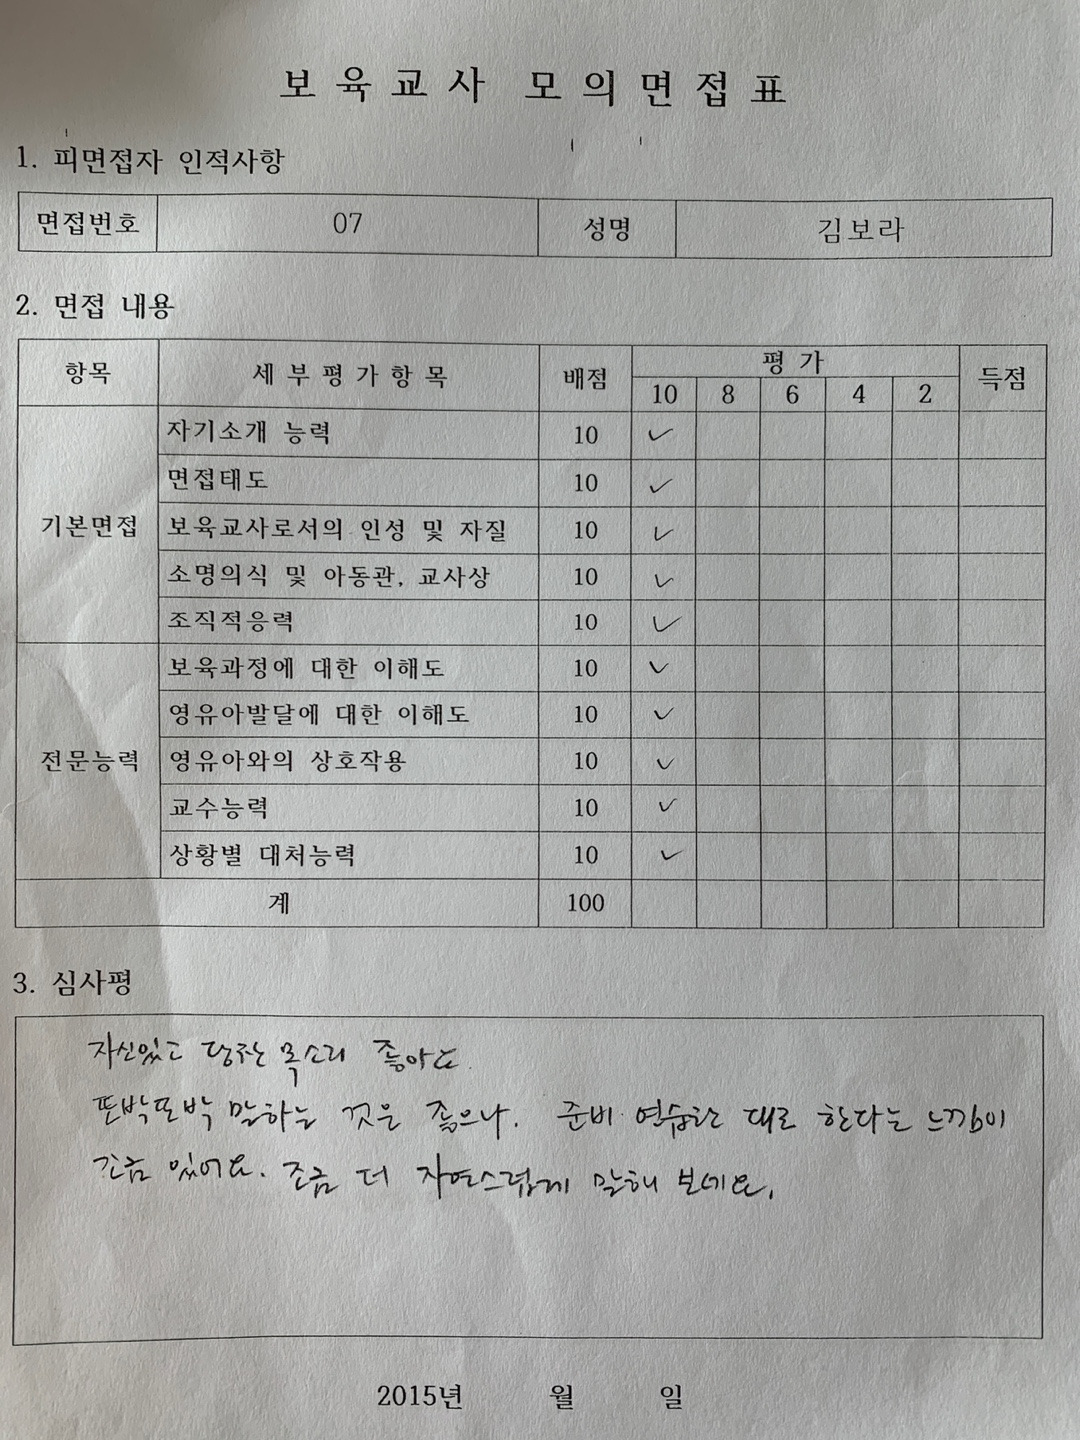 보육교사 모의면접표
1. 피면접자 인적사항
면접번호 07 성명 김보라
2. 면접 내용
항목 세부평가항목 배점 평가 득점
10 8 6 4 2
기본면접
자기소개 능력 10 ✓
면접태도 10 ✓
보육교사로서의 인성 및 자질 10 ✓
소명의식 및 아동관, 교사상 10 ✓
조직적응력 10 ✓
전문능력
보육과정에 대한 이해도 10 ✓
영유아발달에 대한 이해도 10 ✓
영유아와의 상호작용 10 ✓
교수능력 10 ✓
상황별 대처능력 10 ✓
계 100
3. 심사평
자신있고 당찬 목소리 좋아요.
또박또박 말하는 것은 좋으나. 준비 연습한 대로 한다는 느낌이
조금 있어요. 조금 더 자연스럽게 말해 보세요.
2015년 월 일